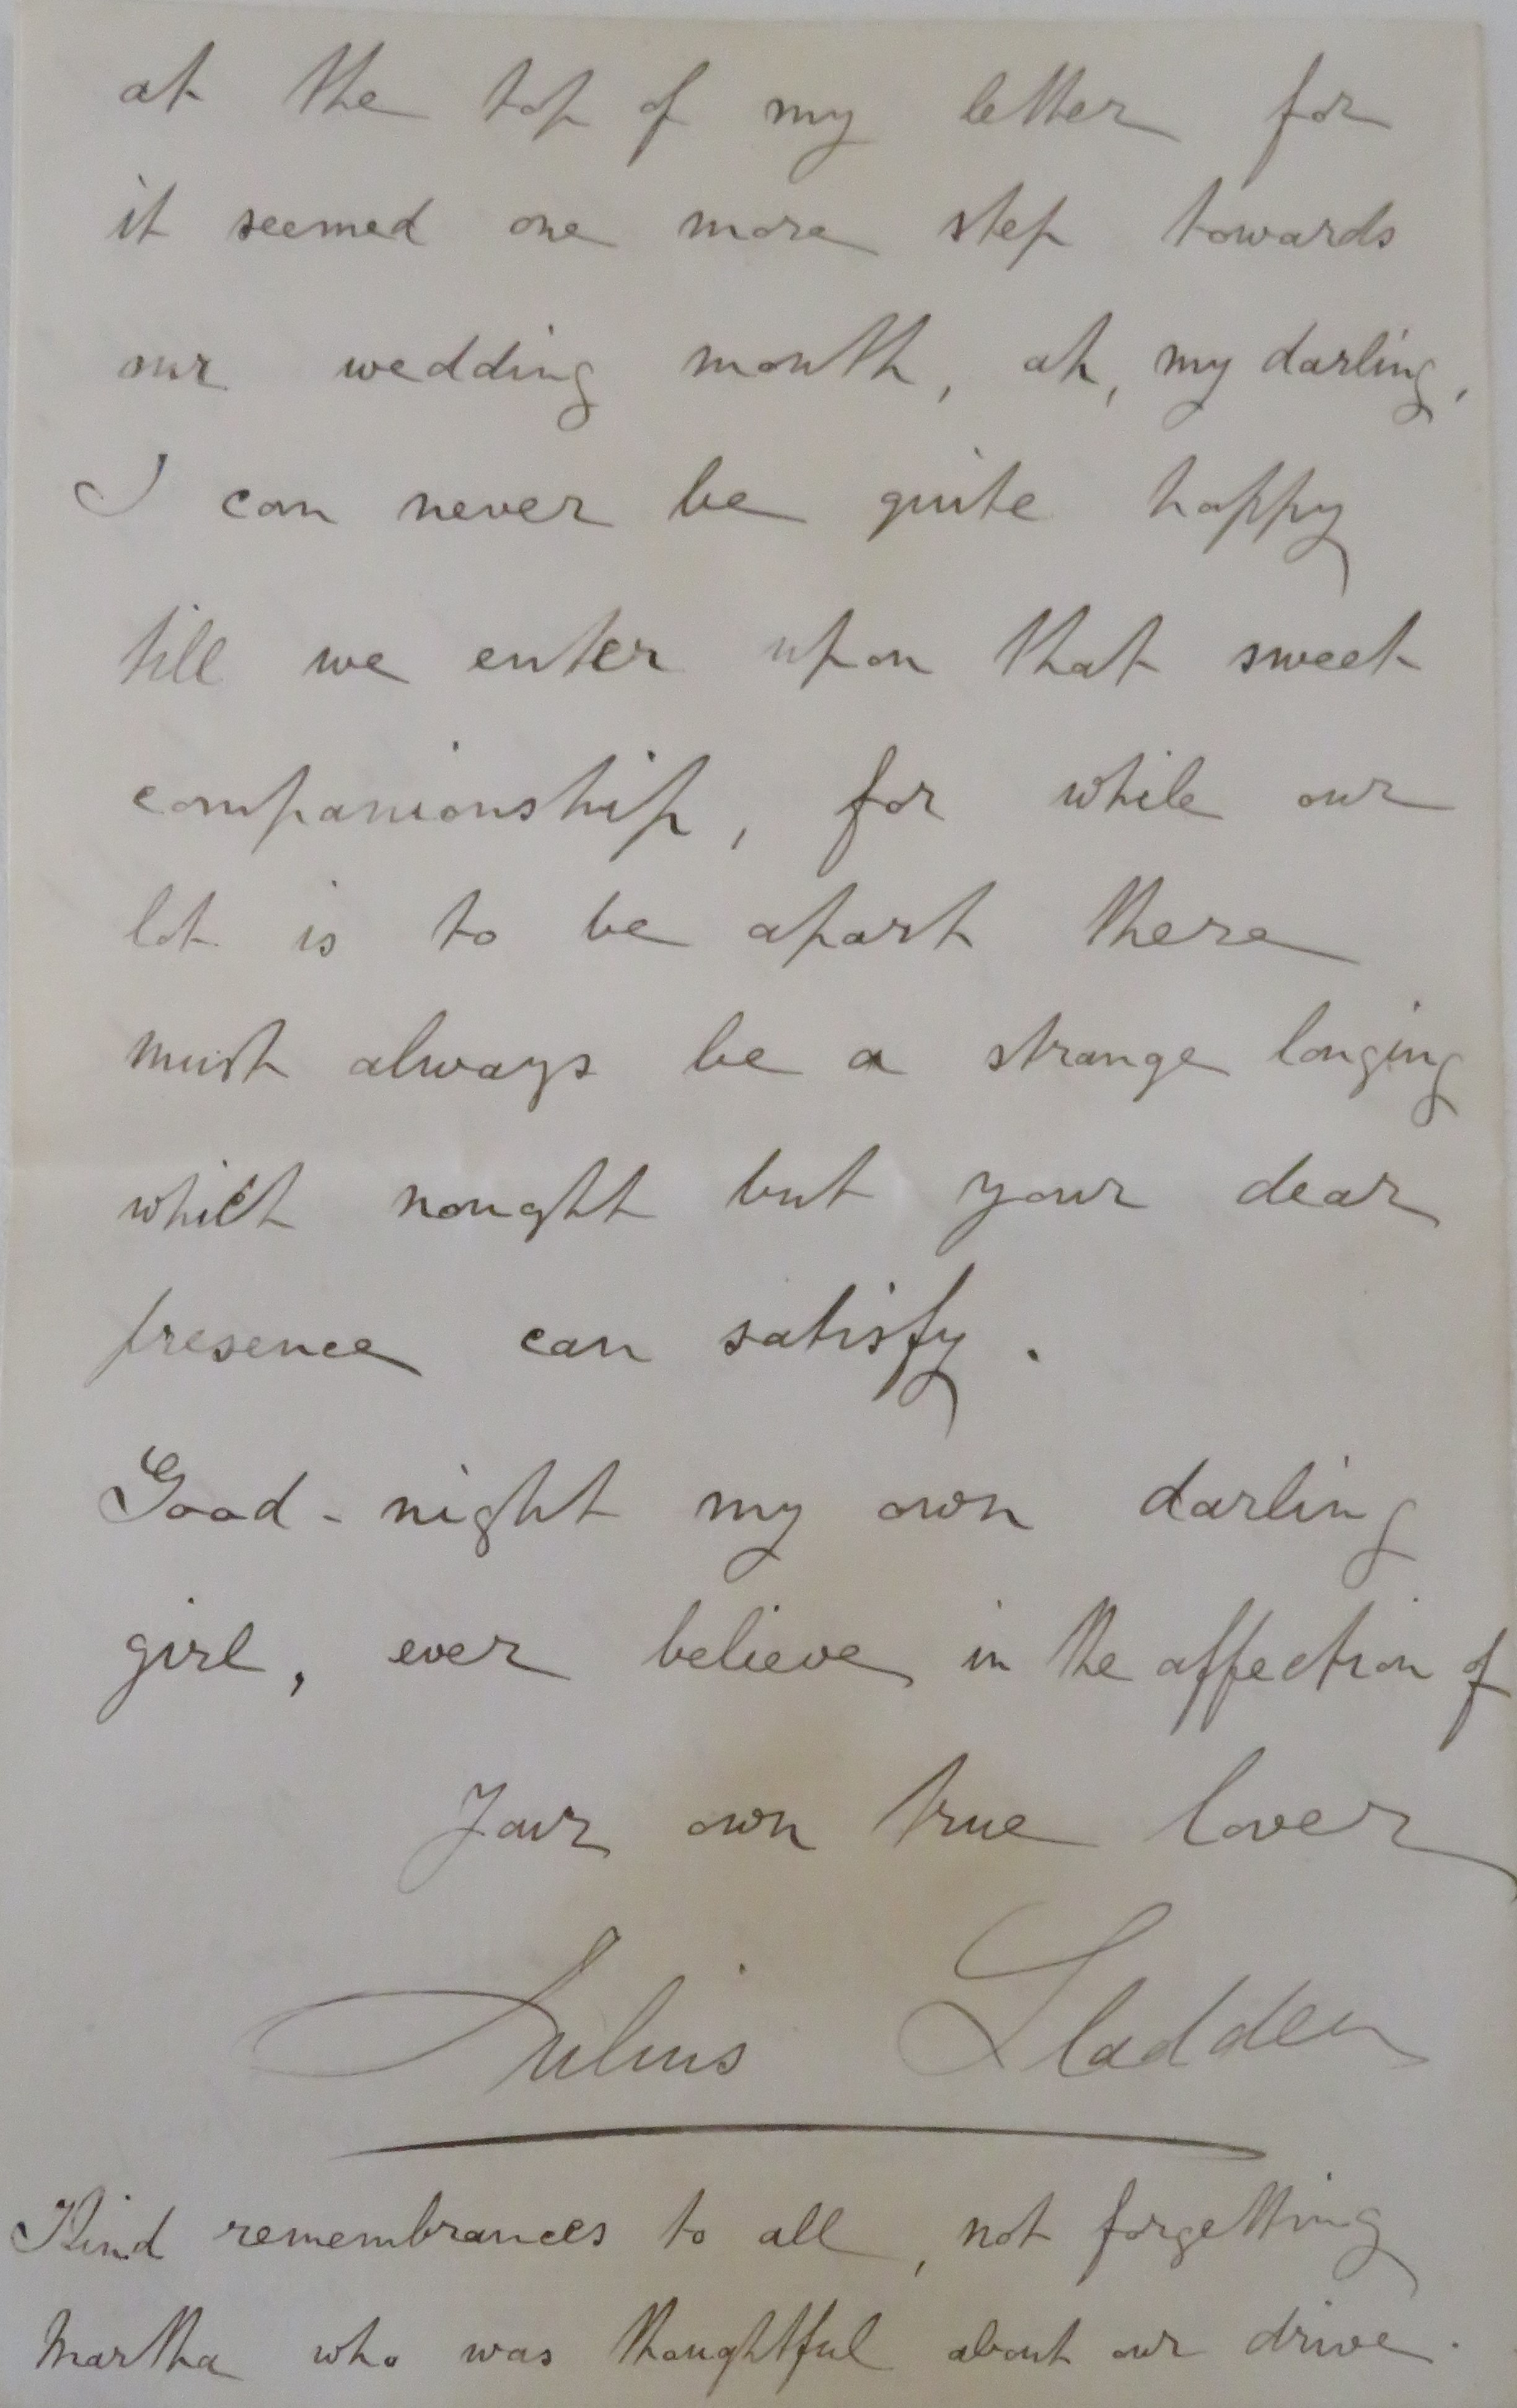 at the top of my letter for
it seemed one more step towards
our wedding month, ah, my darling,
I can never be quite happy
till we enter upon that sweet
companionship, for while our
lot is to be apart there
must always be a strange longing
which nought but your dear
presence can satisfy.
Good-night my own darling
girl, ever believe in the affection of
Your own true lover
Julius Sladden
Kind remembrances to all, not forgetting
Martha who was thoughtful about our drive.